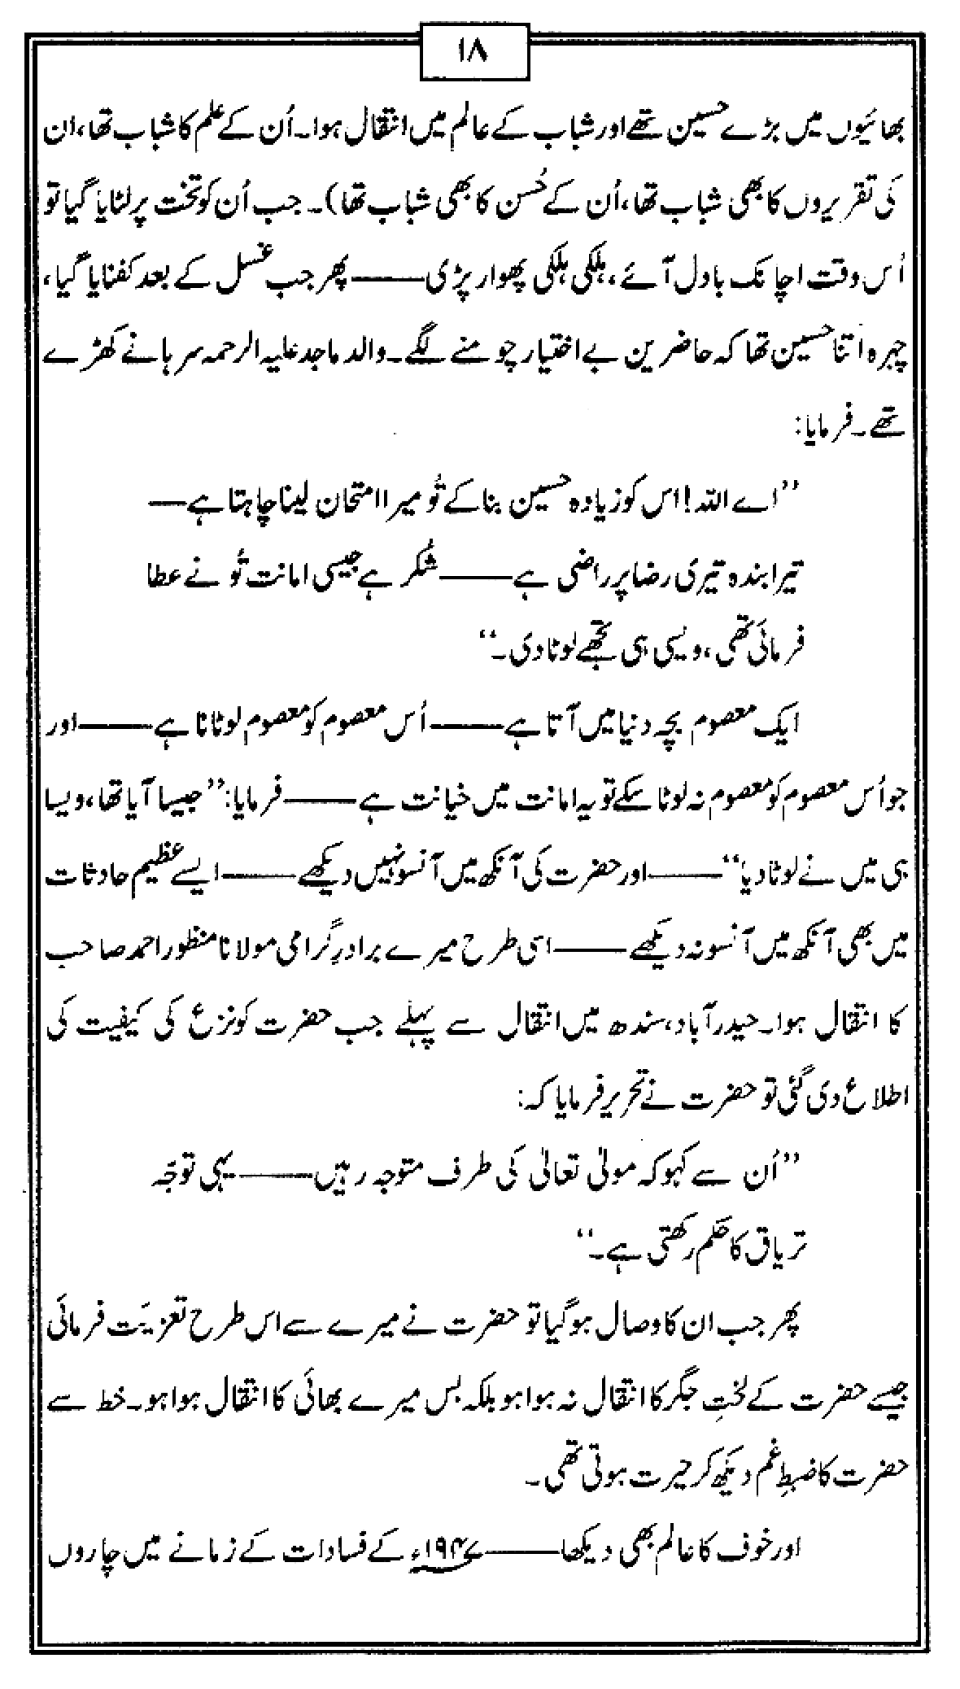 ۱۸
بھائیوں میں بڑے حسین تھے اور شباب کے عالم میں انتقال ہوا۔ اُن کے علم کا شباب تھا، ان
کی تقریروں کا بھی شباب تھا، اُن کے حُسن کا بھی شباب تھا)۔ جب اُن کو تخت پر لٹایا گیا تو
اُس وقت اچانک بادل آئے، ہلکی ہلکی پھوار پڑی —— پھر جب غسل کے بعد کفنایا گیا،
چہرہ اتنا حسین تھا کہ حاضرین بے اختیار چومنے لگے۔ والد ماجد علیہ الرحمہ سرہانے کھڑے
تھے۔ فرمایا:
”اے اللہ! اس کو زیادہ حسین بنا کے تُو میرا امتحان لینا چاہتا ہے —
تیرا بندہ تیری رضا پر راضی ہے —— شُکر ہے جیسی امانت تُو نے عطا
فرمائی تھی، ویسی ہی تجھے لوٹا دی۔“
ایک معصوم بچہ دنیا میں آتا ہے —— اُس معصوم کو معصوم لوٹانا ہے —— اور
جو اُس معصوم کو معصوم نہ لوٹا سکے تو یہ امانت میں خیانت ہے —— فرمایا: ”جیسا آیا تھا، ویسا
ہی میں نے لوٹا دیا“ —— اور حضرت کی آنکھ میں آنسو نہیں دیکھے —— ایسے عظیم حادثات
میں بھی آنکھ میں آنسو نہ دیکھے —— اسی طرح میرے برادرِ گرامی مولانا منظور احمد صاحب
کا انتقال ہوا۔ حیدرآباد، سندھ میں انتقال سے پہلے جب حضرت کو نزع کی کیفیت کی
اطلاع دی گئی تو حضرت نے تحریر فرمایا کہ:
”اُن سے کہو کہ مولیٰ تعالیٰ کی طرف متوجہ رہیں —— یہی توجّہ
تریاق کا حکم رکھتی ہے۔“
پھر جب ان کا وصال ہو گیا تو حضرت نے میرے سے اس طرح تعزیَت فرمائی
جیسے حضرت کے لختِ جگر کا انتقال نہ ہوا ہو بلکہ بس میرے بھائی کا انتقال ہوا ہو۔ خط سے
حضرت کا ضبطِ غم دیکھ کر حیرت ہوتی تھی۔
اور خوف کا عالم بھی دیکھا —— ۱۹۴۷ء کے فسادات کے زمانے میں چاروں